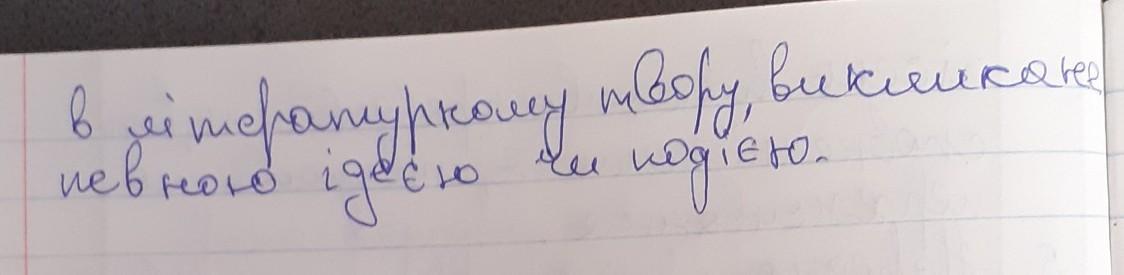 в літературному твору, викликане
певною ідеєю чи подією.